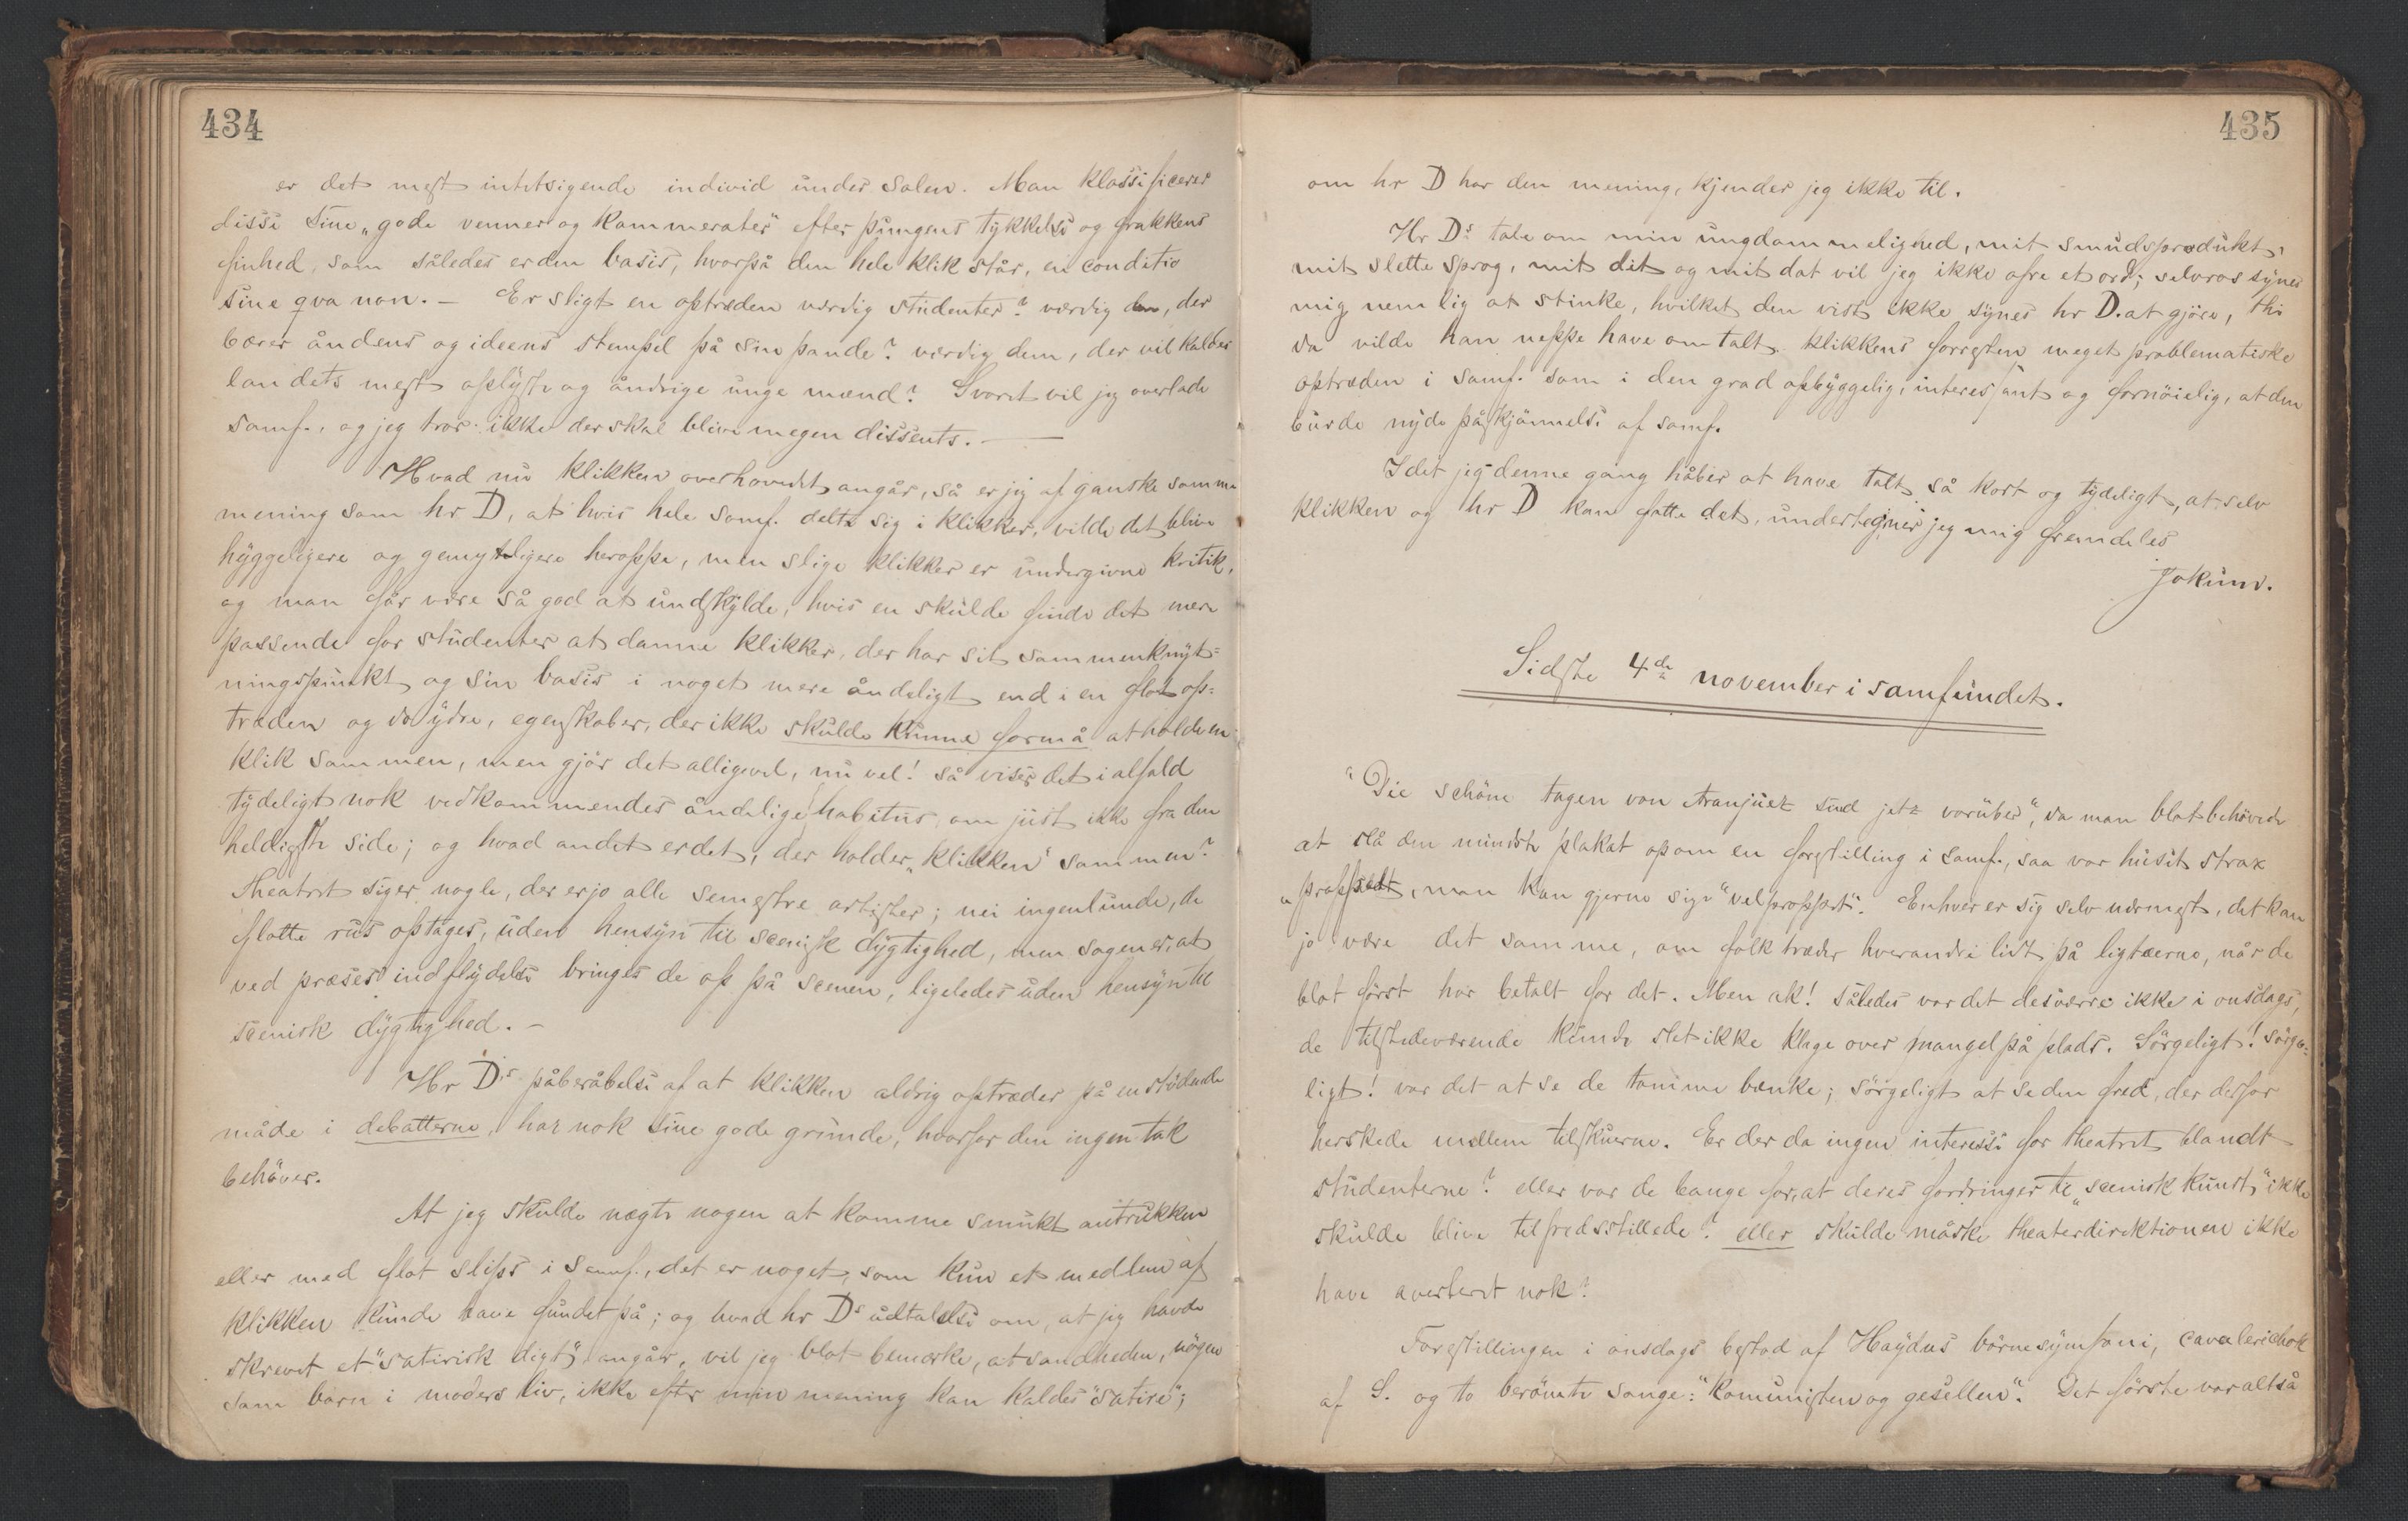 434
er det mest intetsigende individ under solen. Man klassificerer
disse sine „gode venner og kammerater" efter pungens tykkelse og frakkens
finhed, som således er den basis, hvorpå den hele klik står, en conditio
sine qva non. – Er sligt en optræden værdig studenter? værdig dem, der
bærer åndens og ideens stempel på sin pande? værdig dem, der vil kaldes
landets mest oplyste og åndrige unge mænd? Svaret vil jeg overlade
samf., og jeg tror ikke der skal blive megen dissents. –
Hvad nu klikken overhovedet angår, så er jeg af ganske samme
mening som hr D, at hvis hele samf. delte sig i klikker, vilde det blive
hyggeligere og gemytligere heroppe, men slige klikker er undergivne kritik,
og man får være så god at undskylde, hvis en skulde finde det mere
passende for studenter at danne klikker, der har sit sammenknyt=
ningspunkt og sin basis i noget mere åndeligt end i en flot op=
træden og do ydre, egenskaber, der ikke skulde kunne formå at holde en
klik sammen, men gjör det alligevel, nu vel! så viser det i alfald
tydeligt nok vedkommendes åndelige habitus, om just ikke fra den
heldigste side; og hvad andet er det, der holder „klikken" sammen?
Theatret siger nogle, der er jo alle semestre artister; nei ingenlunde, de
flotte rus optages, uden hensyn til scenisk dygtighed, men sagen er, at
ved præses' indflydelse bringes de op på scenen, ligeledes uden hensyn til
scenisk dygtighed. –
Hr D's påberåbelse af at klikken aldrig optræder på en stödende
måde i debatterne, har nok sine gode grunde, hvorfor den ingen tak
behöver.
At jeg skulde nægte nogen at komme smukt antrukken
eller med flot slips i Samf., det er noget, som kun et medlem af
klikken kunde have fundet på; og hvad hr Ds udtalelse om, at jeg havde
skrevet et "satirisk digt" angår, vil jeg blot bemærke, at sandheden, nögen
som barn i moders liv, ikke efter min mening kan kaldes "satire";
435
om hr D har den mening, kjender jeg ikke til.
Hr Ds tale om min ungdommelighed, mit smudsprodukt,
mit slette sprog, mit dit og mit dat vil jeg ikke ofre et ord; selvros synes
mig nemlig at stinke, hvilket den vist ikke synes hr D. at gjöre, thi
da vilde han neppe have omtalt klikkens forresten meget problematiske
optræden i samf. som i den grad opbyggelig, interessant og fornöielig, at den
burde nyde påskjönnelse af samf.
Idet jeg denne gang håber at have talt så kort og tydeligt, at selv
klikken og hr D kan fatte det, undertegner jeg mig fremdeles
Jokum.
Sidste 4de november i samfundet.
"Die schöne tagen von Aranjuez sind jetz vorüber", da man blot behövede
at slå den mindste plakat op om en forestilling i samf., saa var huset strax
"proppet, man kan gjerne sige "velproppet". Enhver er sig selv nærmest, det kan
jo være det samme, om folk træder hverandre lidt på ligtæerne, når de
blot först har betalt for det. Men ak! således var det desværre ikke i onsdags,
de tilstedeværende kunde slet ikke klage over mangel på plads. Sörgeligt! sörge=
ligt! var det at se de tomme bænke; sörgeligt at se den fred, der derfor
herskede mellem tilskuerne. Er der da ingen interesse for theatret blandt
studenterne? eller var de bange for, at deres fordringer til „scenisk kunst" ikke
skulde blive tilfredsstillede? eller skulde måske theaterdirektionen ikke
have averteret nok?
Forestillingen i onsdags bestod af Haydns börnesymfoni, cavalerichok
af S. og to berömte sange: "Komunisten og gesellen". Det förste var altså